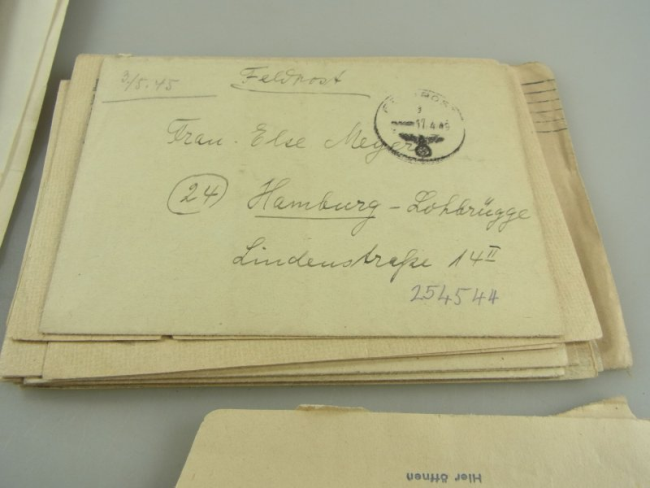 3/5.45
Feldpost
17.4.45
Frau Else Meyer
24
Hamburg-Lohbrügge
Lindenstraße 14 II
254544
Hier öffnen